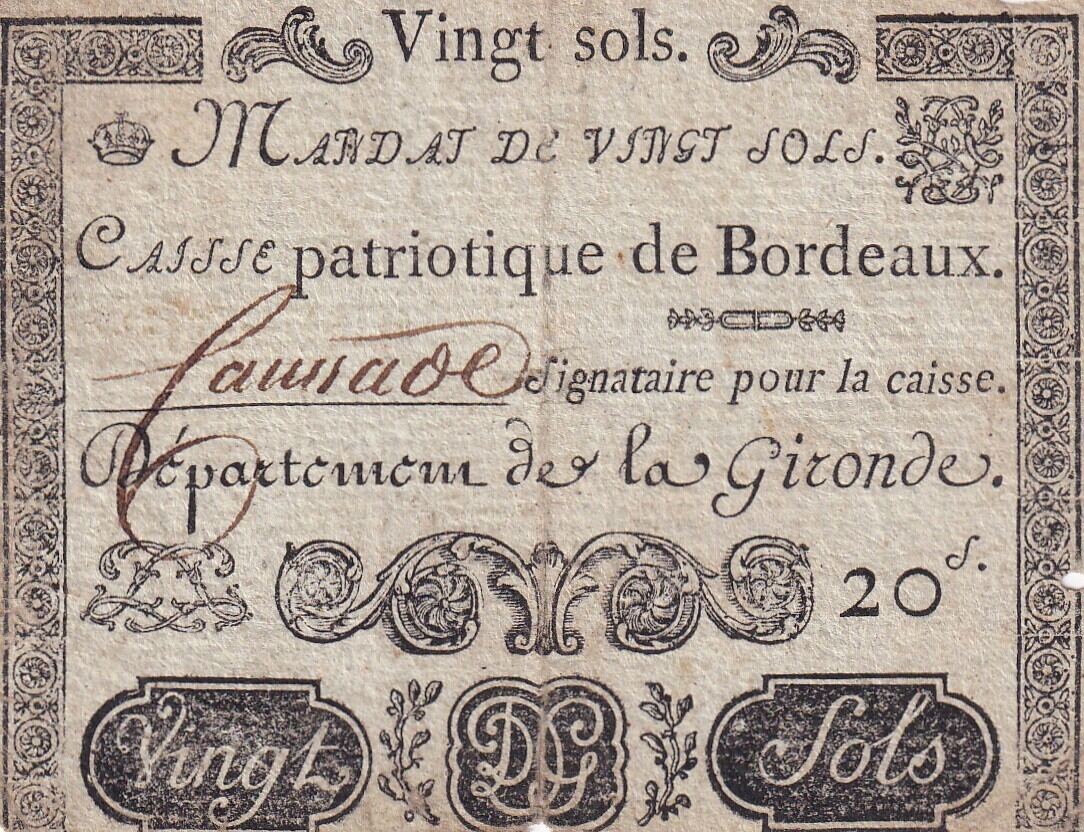 Vingt sols.
MANDAT DE VINGT SOLS.
CAISSE patriotique de Bordeaux.
Signataire pour la caisse.
Département de la Gironde.
20 S.
Vingt DG Sols